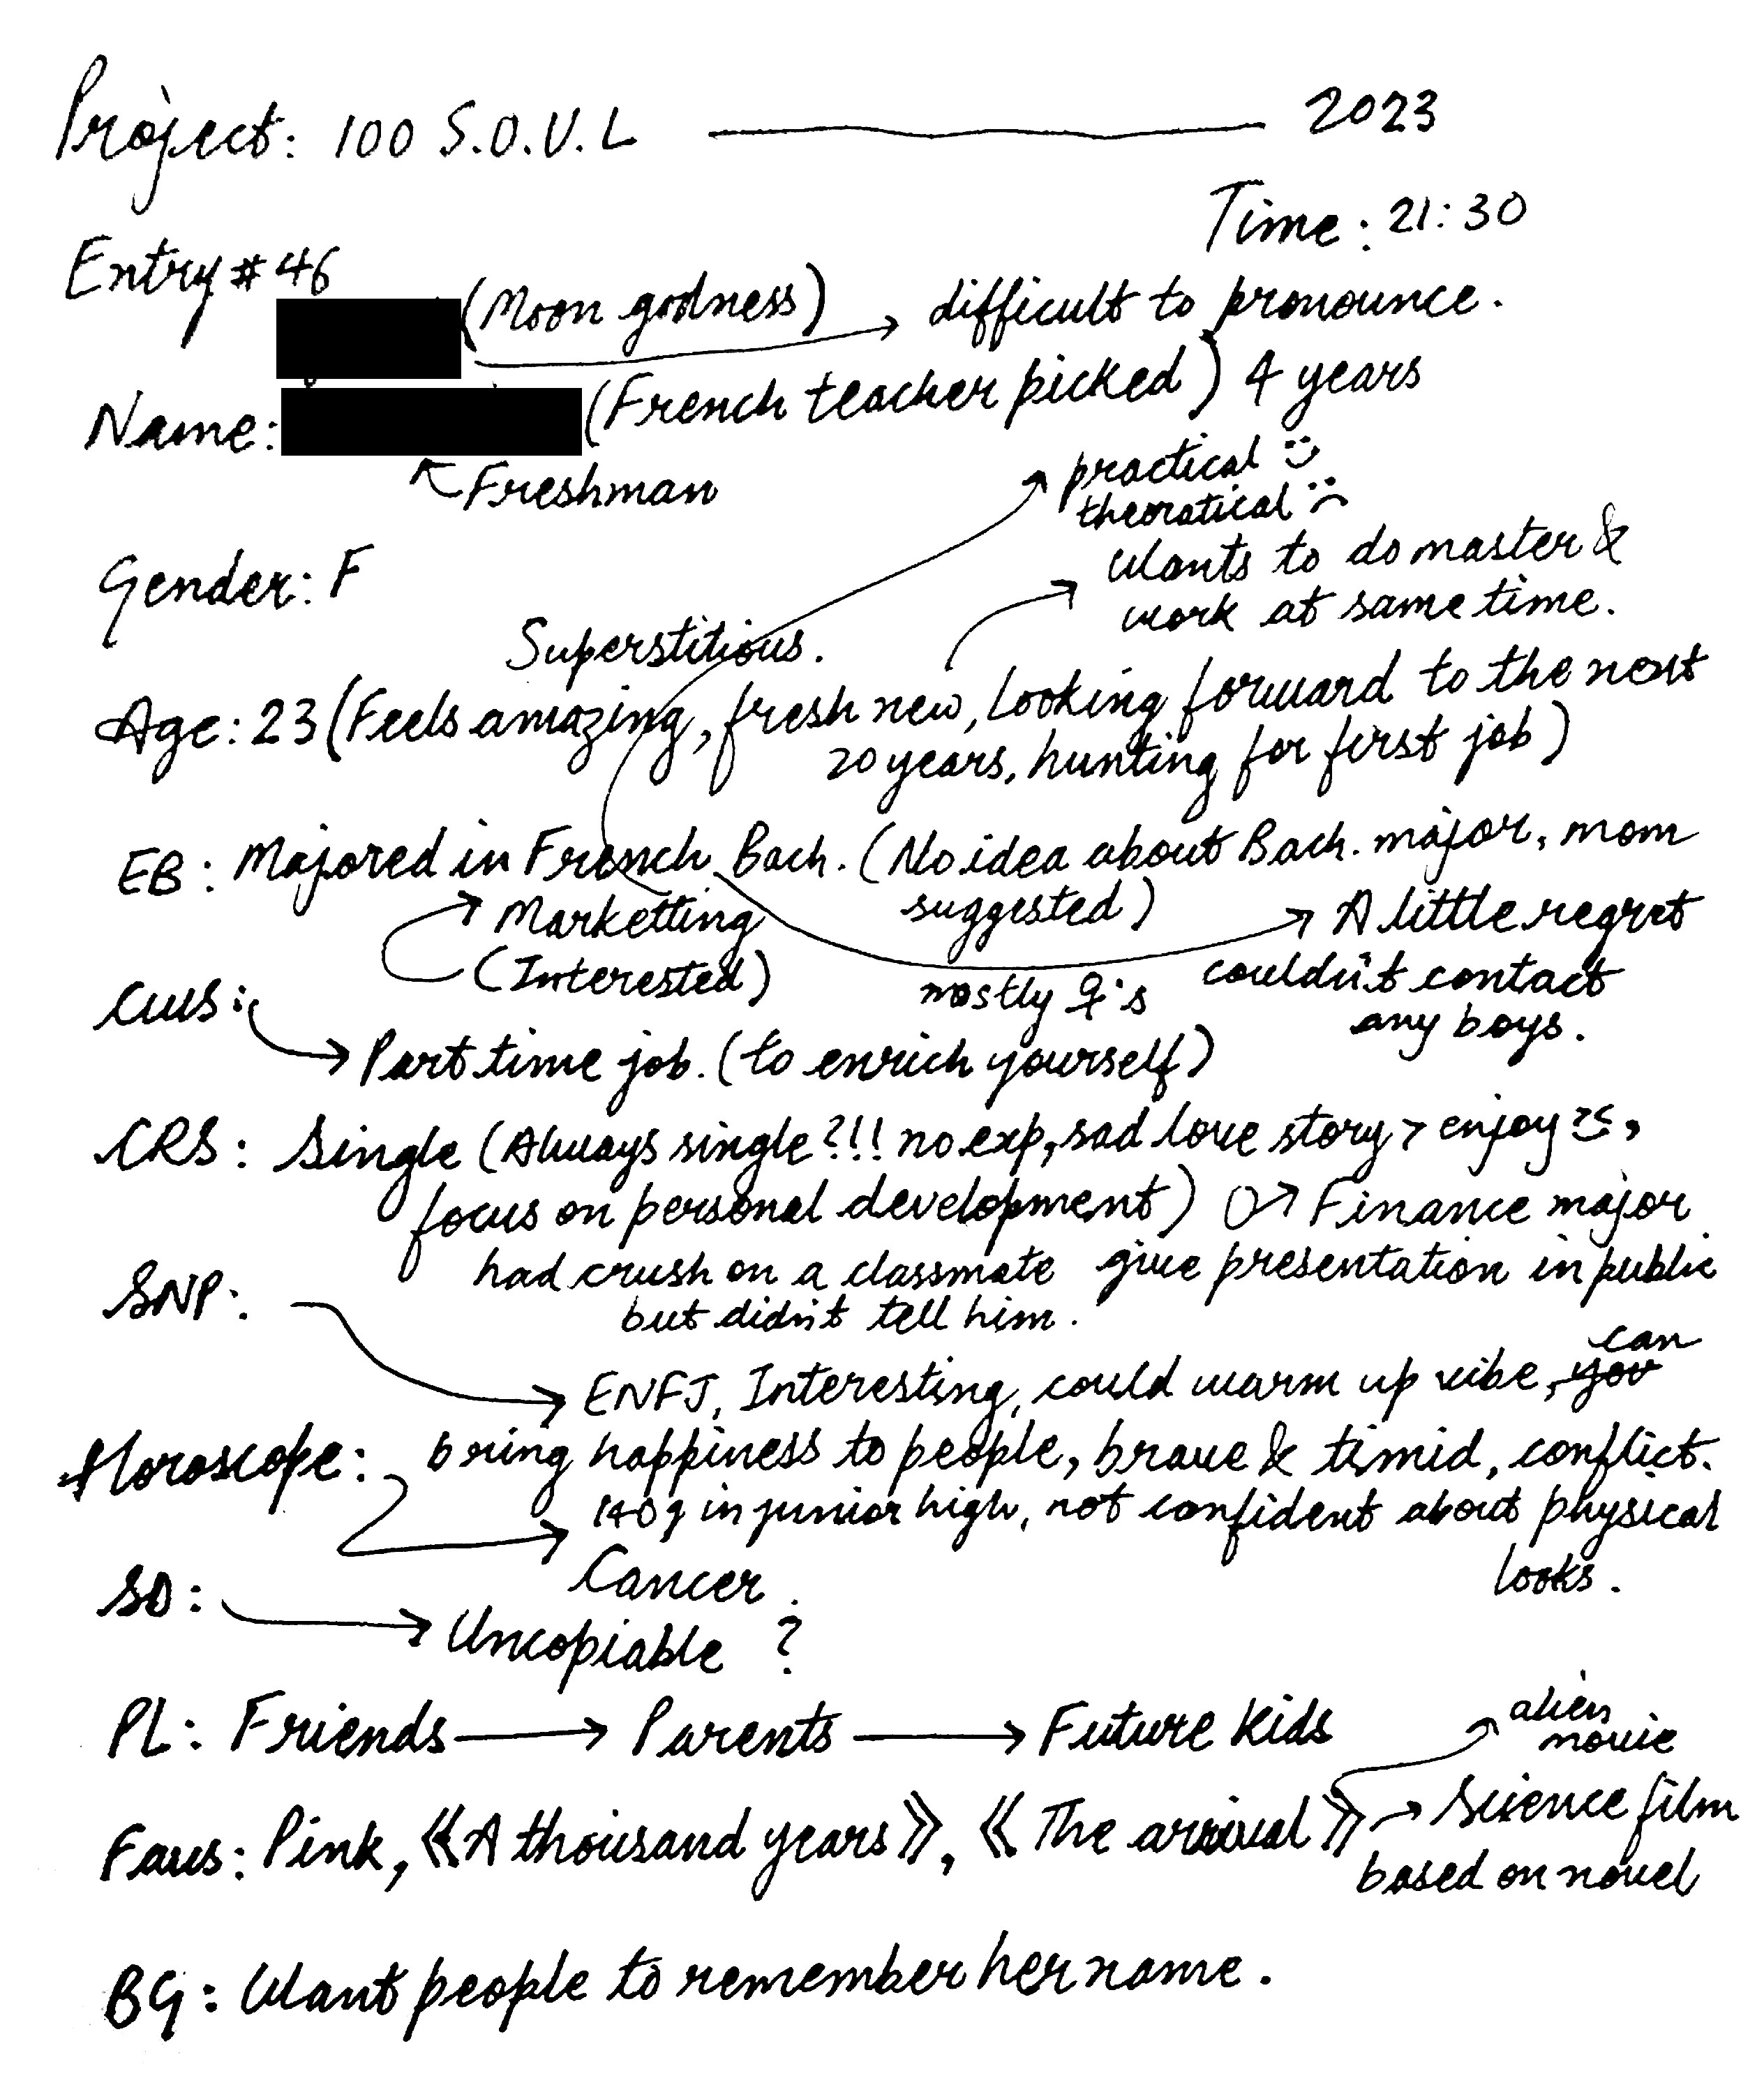 Project: 100 S.O.U.L — 2023
Time: 21:30
Entry #46
(Moon godness) → difficult to pronounce.
Name: (French teacher picked) 4 years
↖ Freshman
practical :)
theoratical :(
Gender: F
Wants to do master &
work at same time.
Superstitious.
Age: 23 (Feels amazing, fresh new, looking forward to the next
20 years, hunting for first job)
EB: Majored in French Bach. (No idea about Bach. major, mom
suggested)
→ Marketting
(Interested)
→ A little regret
mostly ♀'s
couldn't contact
any boys.
CWS:
→ Part time job. (to enrich yourself)
CRS: Single (Always single?!! no exp, sad love story → enjoy,
focus on personal development) → Finance major
had crush on a classmate give presentation in public
but didn't tell him.
SNP:
→ ENFJ, Interesting, could warm up vibe, you can
bring happiness to people, brave & timid, conflict.
Horoscope:
in junior high, not confident about physical
looks.
→ Cancer.
SD: → Uncopiable ?
PL: Friends → Parents → Future Kids
alien
movie
Favs: Pink, 《A thousand years》, 《The arrival》 → Science film
based on novel
BG: Want people to remember her name.